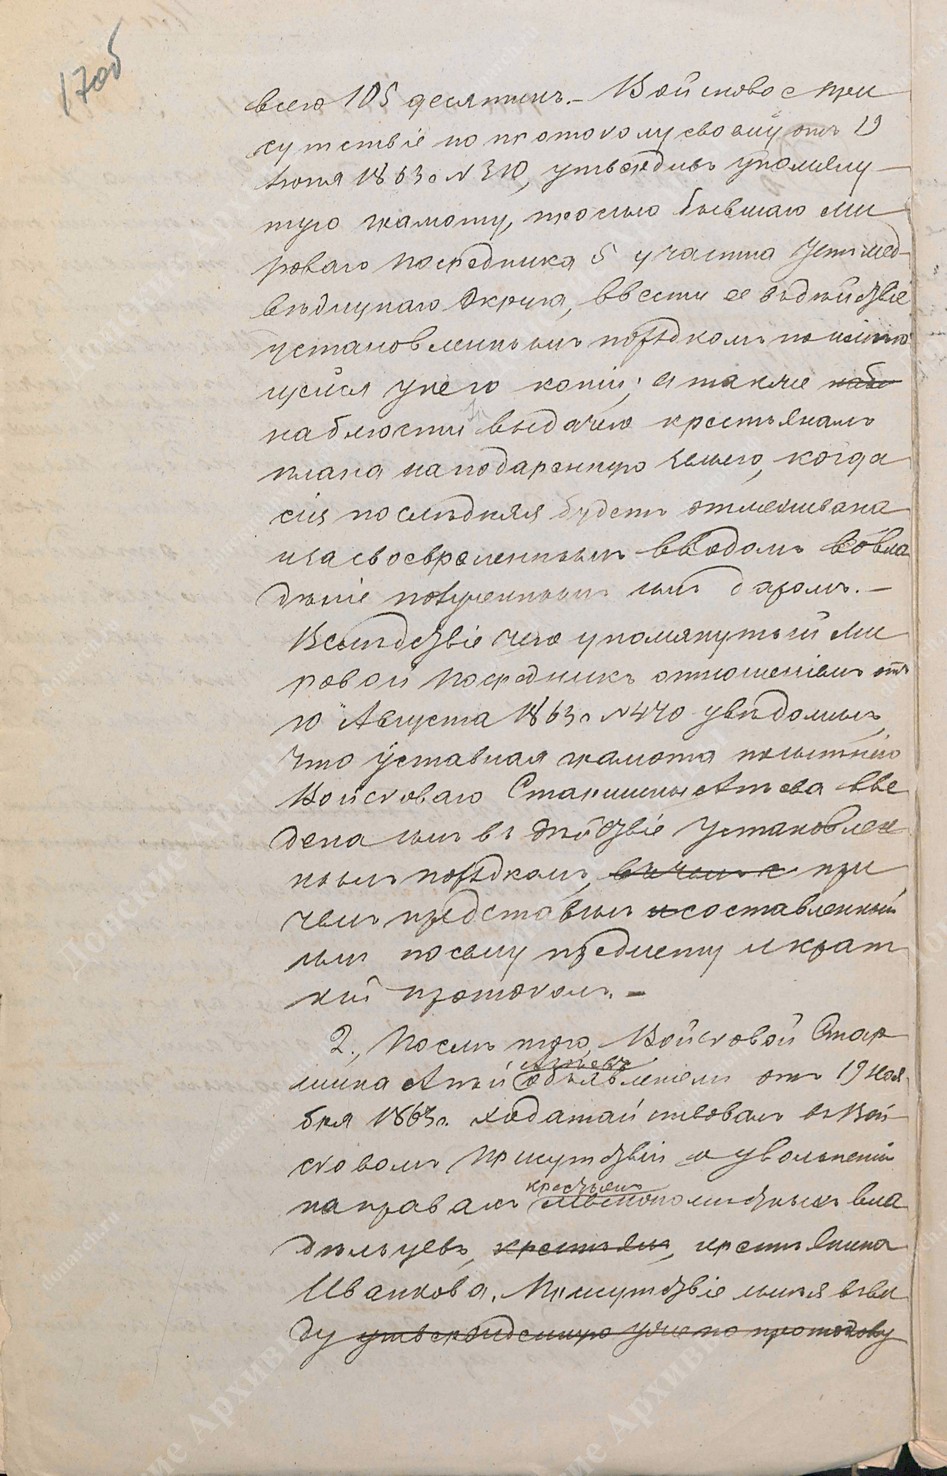 17об
всего 105 десятинъ. – Войсковое при
сутствіе по протоколу своему отъ 19
Іюня 1863 г № 310, утвердивъ упомяну–
тую грамоту, просило бывшаго Ми
роваго Посредника 5 участка Устьмед–
вѣдицкаго Округа, ввести ее въ дѣйствіе
установленнымъ порядкомъ по имѣю
щейся у него копіи; а также набл
наблюсти за выдачею крестьянамъ
плана на подаренную землю, когда
сія послѣдняя будетъ отмежевана
и за своевременнымъ вводомъ во вла
дѣніе полученнымъ имъ даромъ. –
Вслѣдствіе чего упомянутый Ми
ровой Посредникъ отношеніемъ отъ
10 Августа 1863 г № 470 увѣдомилъ,
что уставная грамота по имѣнію
Войсковаго Старшины Агѣева вве
дена имъ въ дѣйствіе установлен
нымъ порядкомъ, въ чемъ с при
чемъ представилъ и составленный
имъ по сему предмету и крат
кій протоколъ. –
2., Послѣ того Войсковой Стар
Агѣевъ
шина Агѣй объявленіемъ отъ 19 Ноя
бря 1863 г. ходатайствовалъ въ Вой
сковомъ Присутствіи о увольненіи
крестьянъ
на правахъ мѣлкопомѣстныхъ вла
дѣльцевъ, крестьян, крестьянина
Иванкова. Присутствіе имѣя въ ви
ду утвержденную уже по протоколу